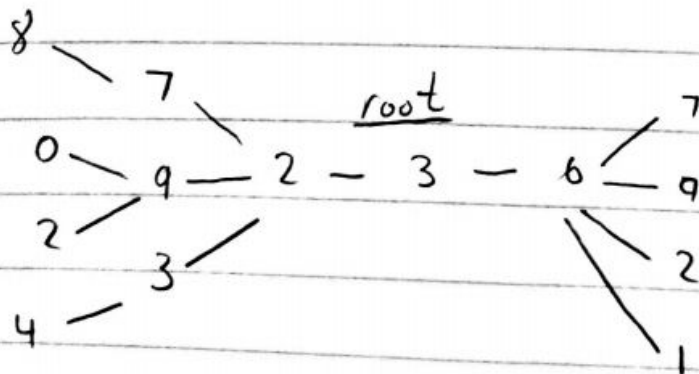 8
7 root 7
0 9 2 3 6 9
2 3 2
4 1